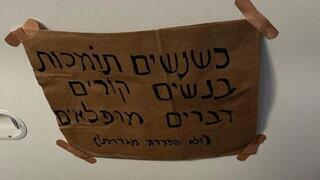 כשנשים תומכות
בנשים קורים
דברים מופלאים
(ולא הפרדת מגדרית!)